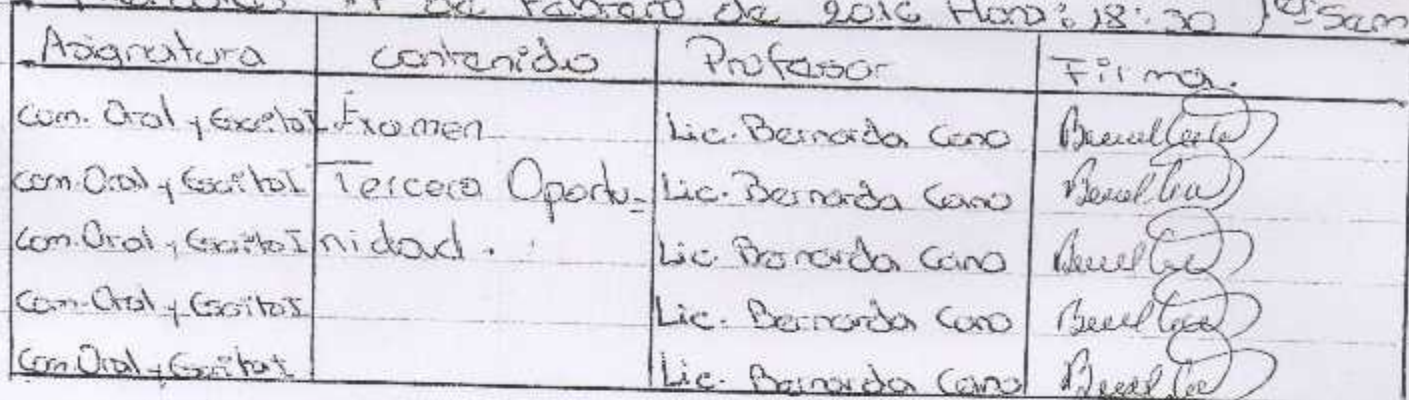 de Febrero de 2016 Hora: 18:30 1er Sem
Asignatura Contenido Profesor Firma.
Com. Oral y Escrita I Examen Lic. Bernarda Cano
Com. Oral y Escrita I Tercera Oportu- Lic. Bernarda Cano
Com. Oral y Escrita I nidad. Lic. Bernarda Cano
Com. Oral y Escrita I Lic. Bernarda Cano
Com. Oral y Escrita I Lic. Bernarda Cano